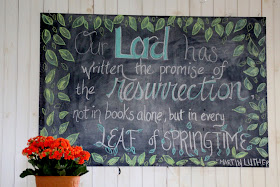 Our Lord has
written the promise of
the resurrection
not in books alone, but in every
LEAF of SPRINGTIME
MARTIN LUTHER